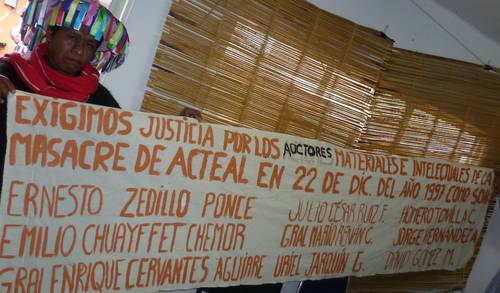 EXIGIMOS JUSTICIA POR LOS AUCTORES MATERIALES E INTELECTUALES DE LA
MASACRE DE ACTEAL EN 22 DE DIC. DEL AÑO 1997 COMO SON
ERNESTO ZEDILLO PONCE JULIO CÉSAR RUIZ F. HOMERO TOVILLA C.
EMILIO CHUAYFFET CHEMOR GRAL MARIO C. JORGE HERNÁNDEZ A.
GRAL ENRIQUE CERVANTES AGUIRRE URIEL JARQUÍN G. DAVID GÓMEZ M.